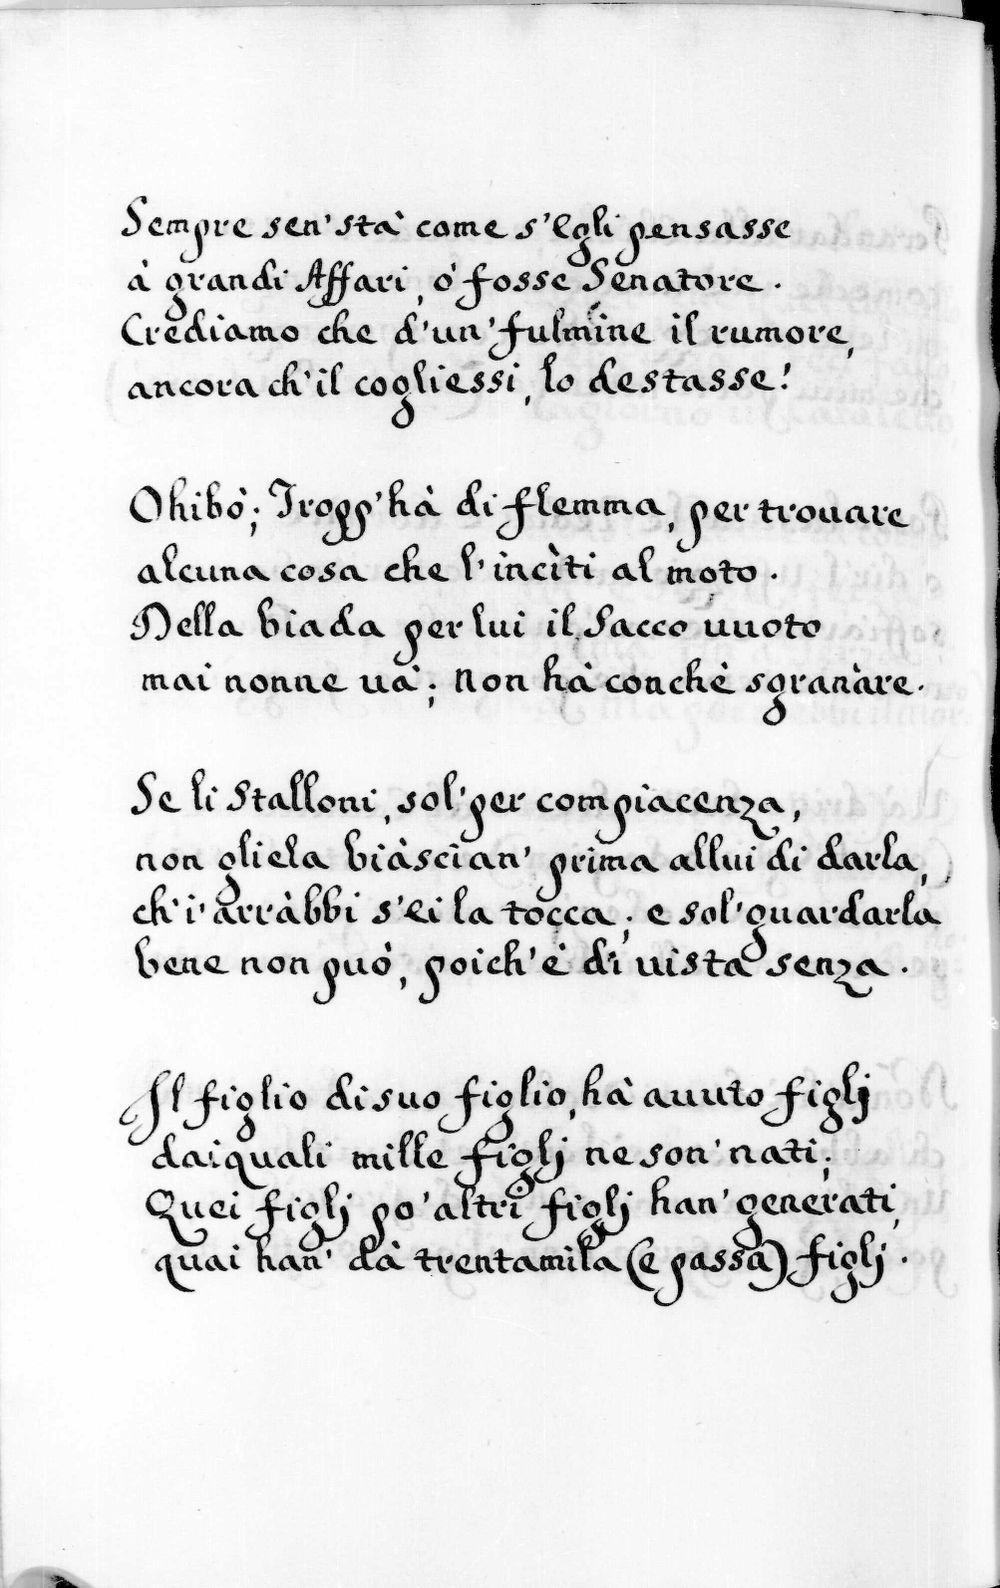 Sempre sen' stà come s'Egli pensasse
à grandi Affari, ò fosse Senatore.
Crediamo che d'un' fulmine il rumore,
ancora ch'il cogliessi, lo destasse!
Ohibò; Tropp' hà di flemma, per trouare
alcuna cosa che l'incìti al moto.
Della biada per lui il Sacco uuoto
mai nonne uà; non hà conchè sgranàre.
Se li Stalloni, sol' per compiacenza,
non gliela biàscian' prima allui di darla,
ch'i' arràbbi s'ei la tocca; e sol' guardarla
bene non può, poich' è di uista senza.
Il figlio di suo figlio, hà auuto figlj
dai quali mille figlj ne son' nati;
Quei figlj po' altri figlj han' generati,
quai han' dà trentamila (e passa) figlj.